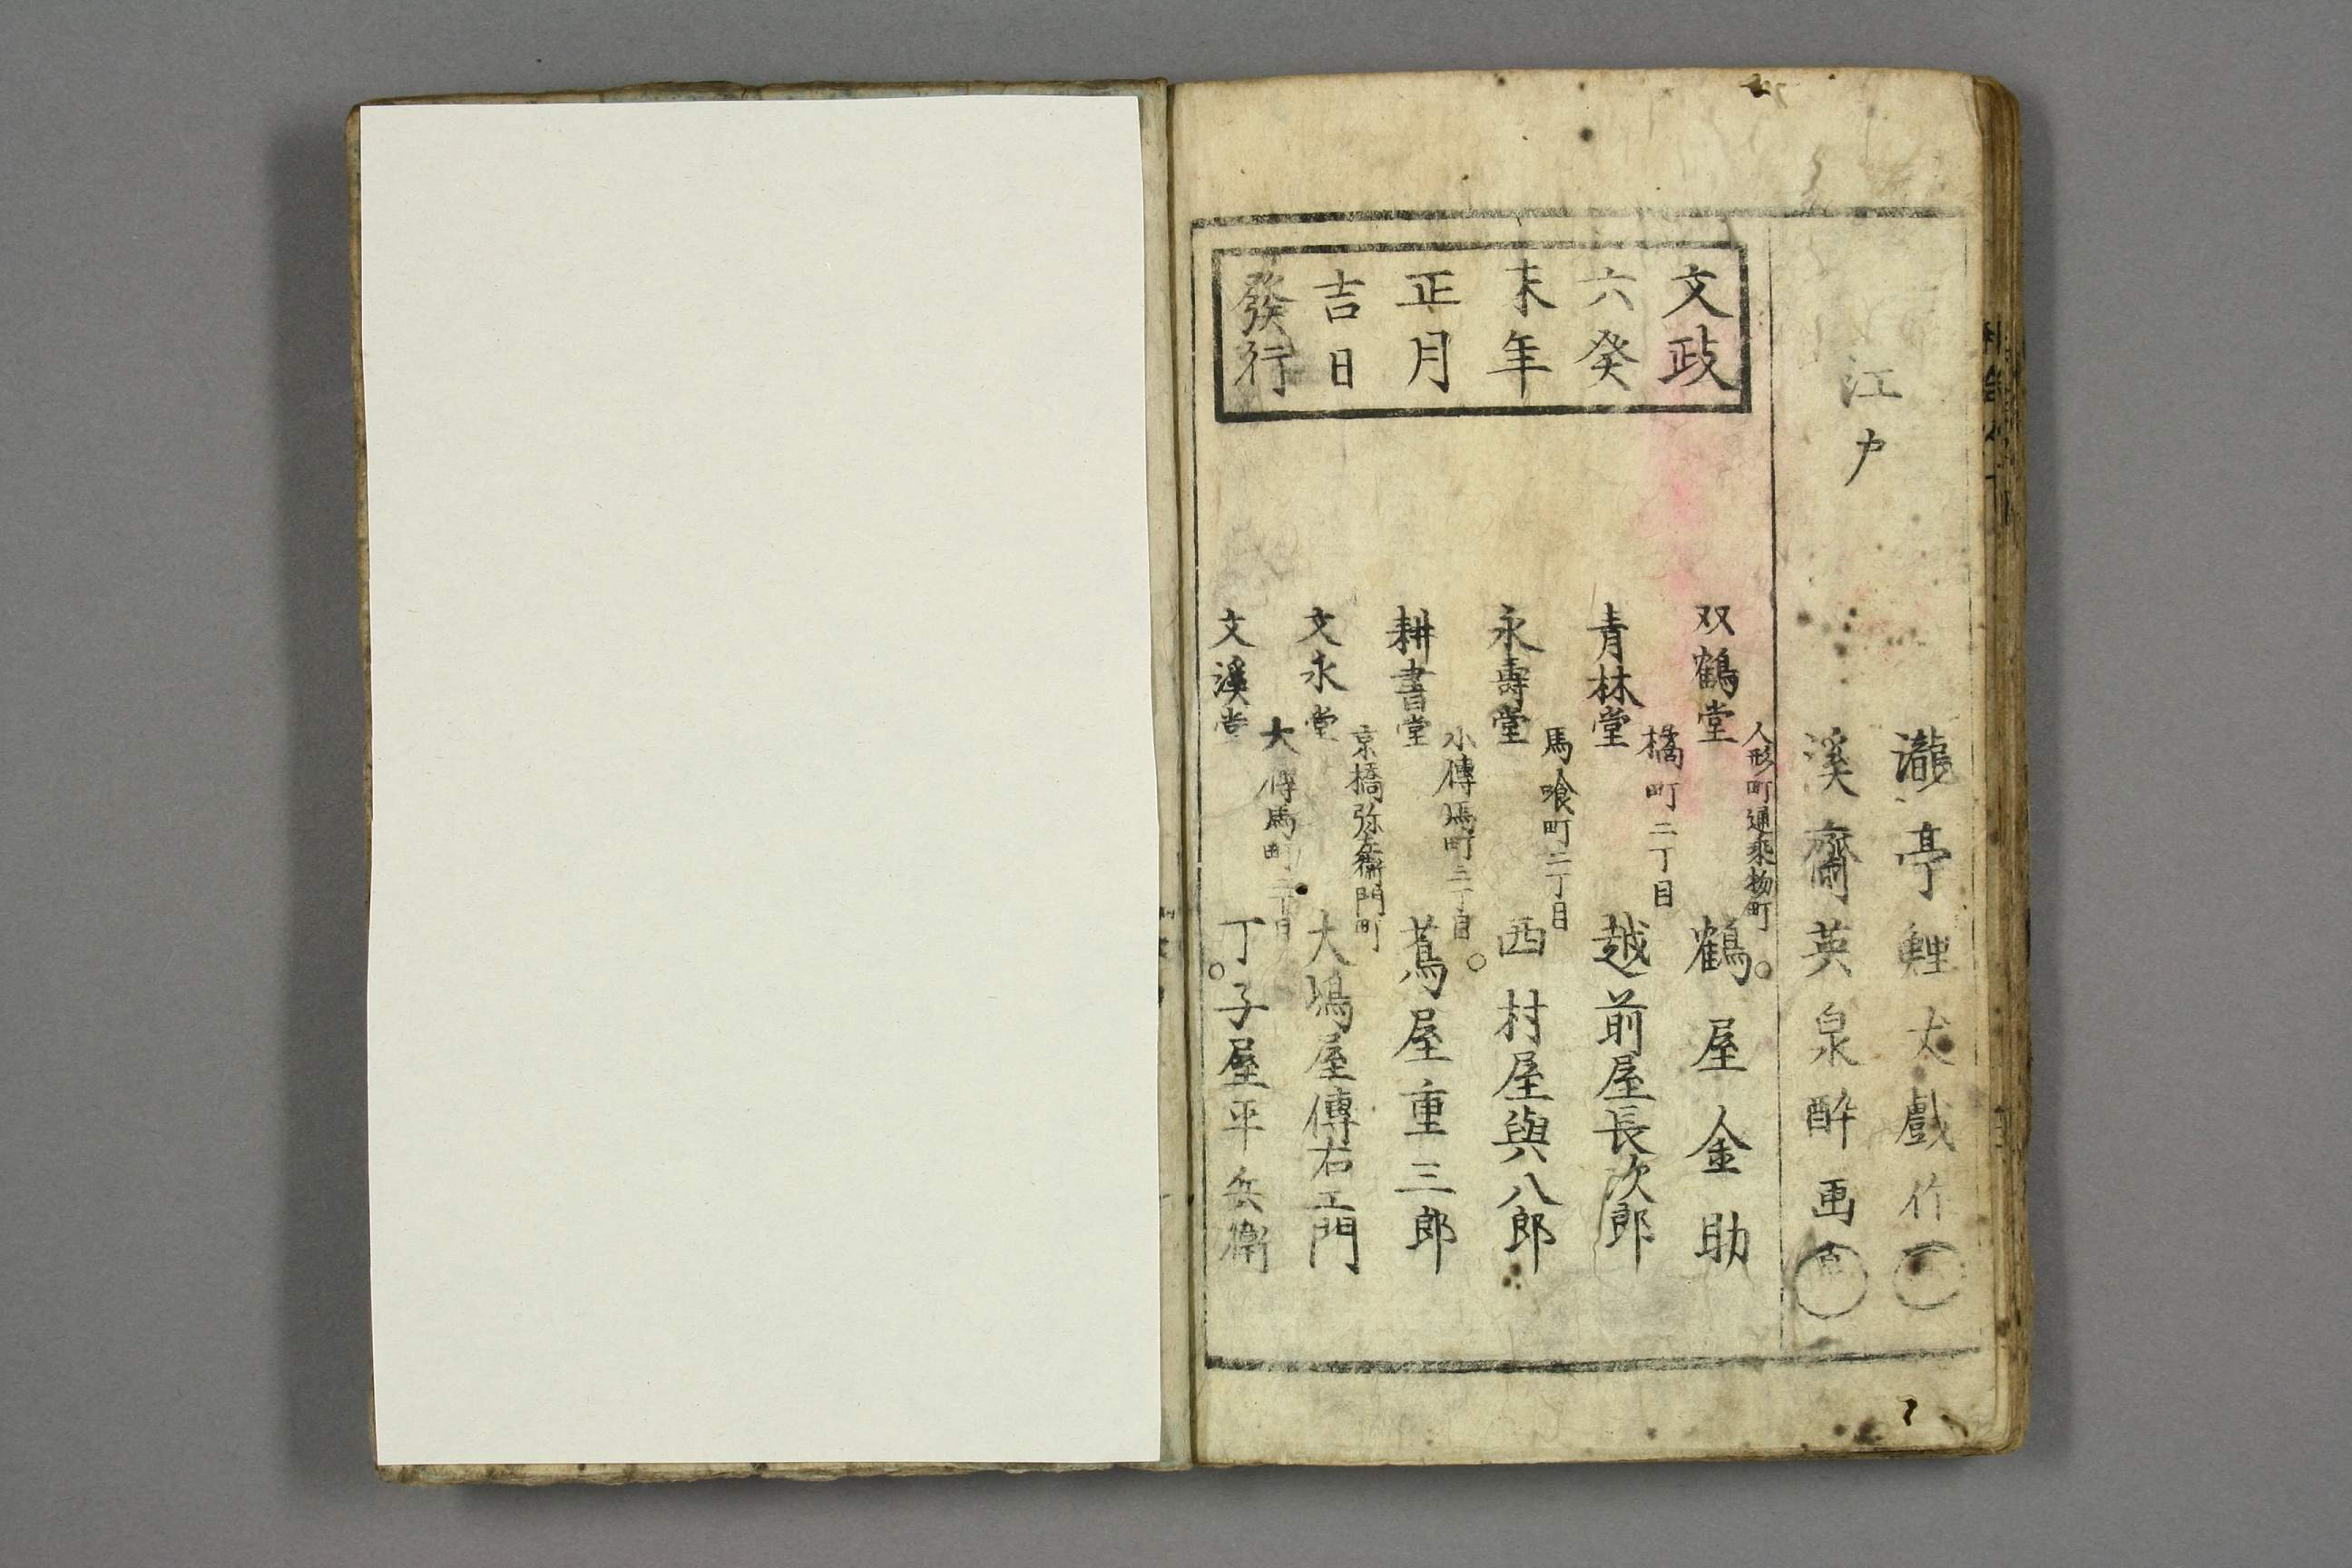 江戸
瀧亭鯉丈戯作
溪齋英泉酔画
文政
六癸
未年
正月
吉日
發行
双鶴堂
人形町通乗物町
鶴屋金助
青林堂
橘町二丁目
越前屋長次郎
永壽堂
馬喰町二丁目
西村屋與八郎
耕書堂
小傳馬町三丁目
蔦屋重三郎
文永堂
京橋弥左衛門町
大嶋屋傳右エ門
文溪堂
大傳馬町二丁目
丁子屋平兵衛